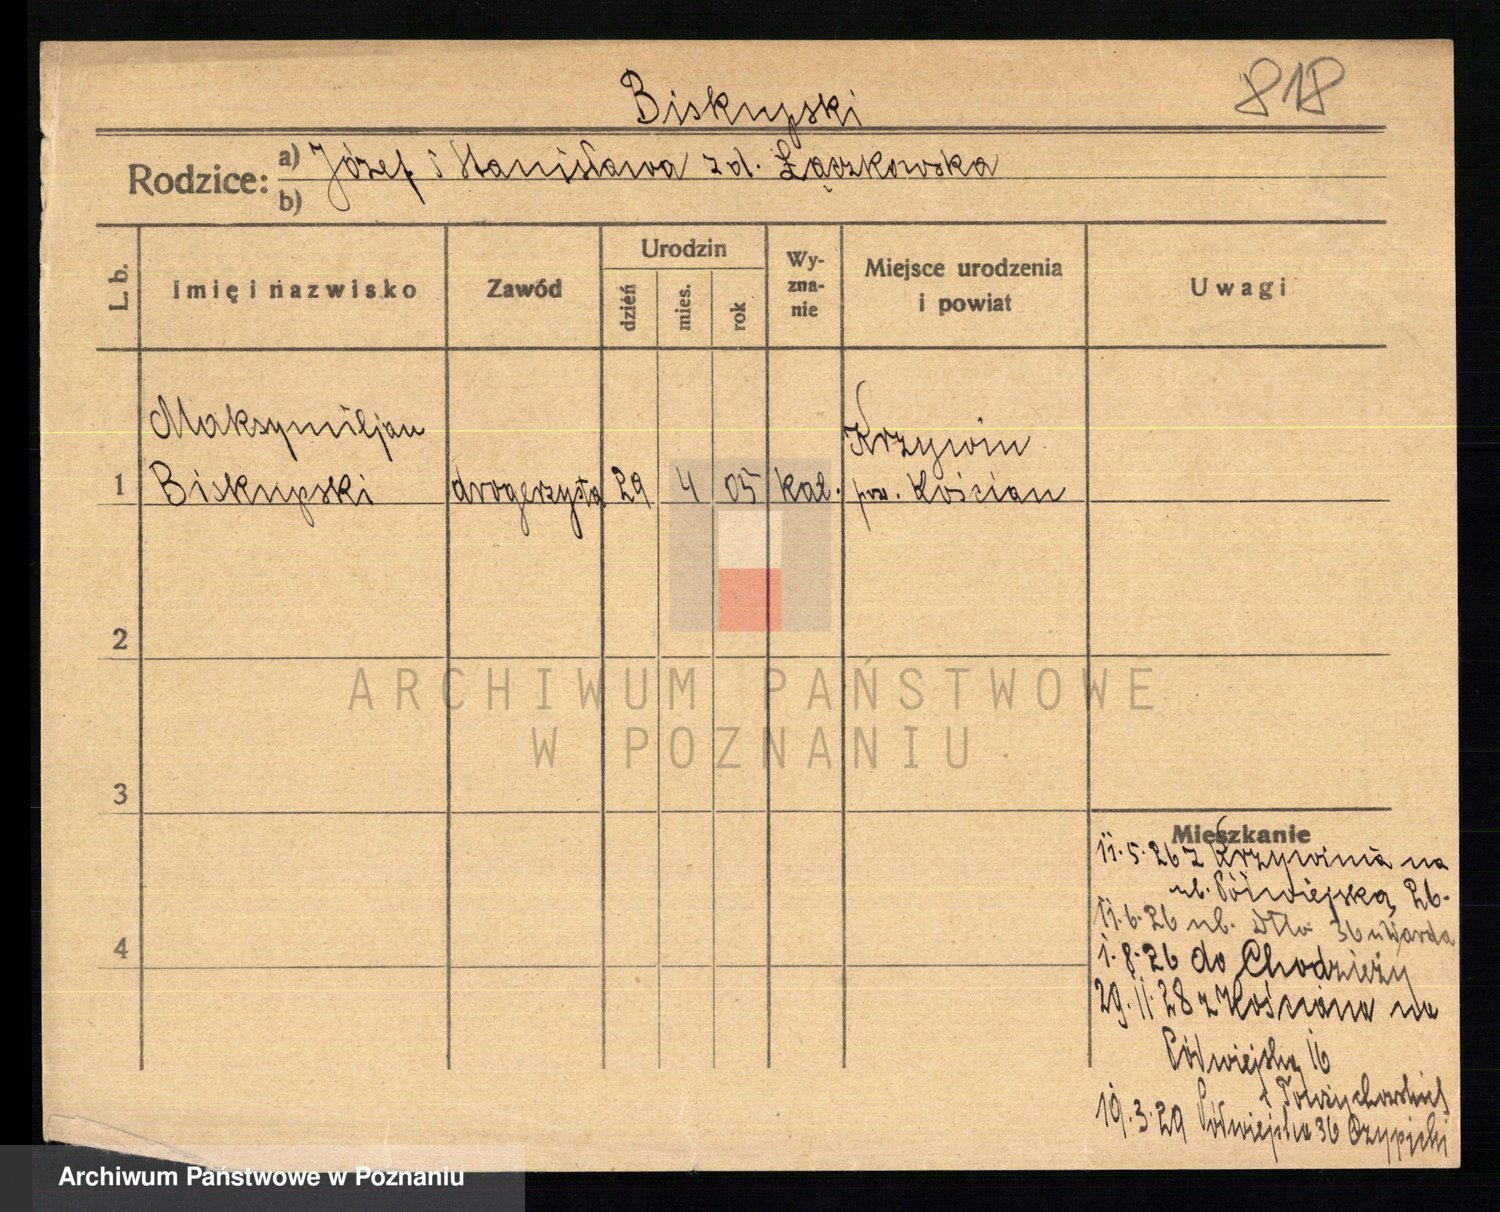 818
Biskupski
Rodzice: a) Józef i Stanisława z d. Łączkowska
b)
L. b. Imię i nazwisko Zawód Urodzin dzień mies. rok Wy-zna-nie Miejsce urodzenia i powiat Uwagi
Maksymiljan Krzywiń
1 Biskupski drogerzysta 29 4 05 kat. pow. Kościan
2
ARCHIWUM PAŃSTWOWE
W POZNANIU
3
Mieszkanie
11.5.26 z Krzywinia na
ul. Półwiejską 26.
11.6.26 ul. 36 u Warda
1.8.26 do Chodzieży
29.11.28 z Kościana na
Półwiejską 16
4
19.3.29 Półwiejska 36
Archiwum Państwowe w Poznaniu